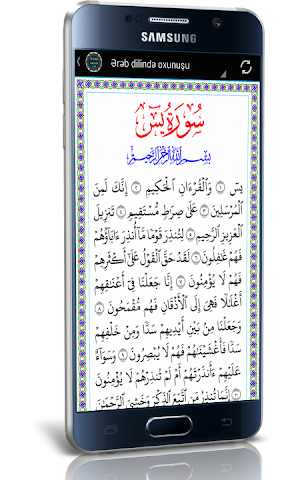 SAMSUNG
Ərəb dilində oxunuşu
سُورَةُ يسٓ
بِسْمِ اللَّهِ الرَّحْمَٰنِ الرَّحِيمِ
يسٓ ۝١ وَٱلْقُرْءَانِ ٱلْحَكِيمِ ۝٢ إِنَّكَ لَمِنَ
ٱلْمُرْسَلِينَ ۝٣ عَلَىٰ صِرَٰطٍ مُّسْتَقِيمٍ ۝٤ تَنزِيلَ
ٱلْعَزِيزِ ٱلرَّحِيمِ ۝٥ لِتُنذِرَ قَوْمًا مَّآ أُنذِرَ ءَابَآؤُهُمْ
فَهُمْ غَٰفِلُونَ ۝٦ لَقَدْ حَقَّ ٱلْقَوْلُ عَلَىٰٓ أَكْثَرِهِمْ
فَهُمْ لَا يُؤْمِنُونَ ۝٧ إِنَّا جَعَلْنَا فِىٓ أَعْنَٰقِهِمْ
أَغْلَٰلًا فَهِىَ إِلَى ٱلْأَذْقَانِ فَهُم مُّقْمَحُونَ ۝٨
وَجَعَلْنَا مِنۢ بَيْنِ أَيْدِيهِمْ سَدًّا وَمِنْ خَلْفِهِمْ
سَدًّا فَأَغْشَيْنَٰهُمْ فَهُمْ لَا يُبْصِرُونَ ۝٩ وَسَوَآءٌ
عَلَيْهِمْ ءَأَنذَرْتَهُمْ أَمْ لَمْ تُنذِرْهُمْ لَا يُؤْمِنُونَ
۝١٠ إِنَّمَا تُنذِرُ مَنِ ٱتَّبَعَ ٱلذِّكْرَ وَخَشِىَ ٱلرَّحْمَٰنَ